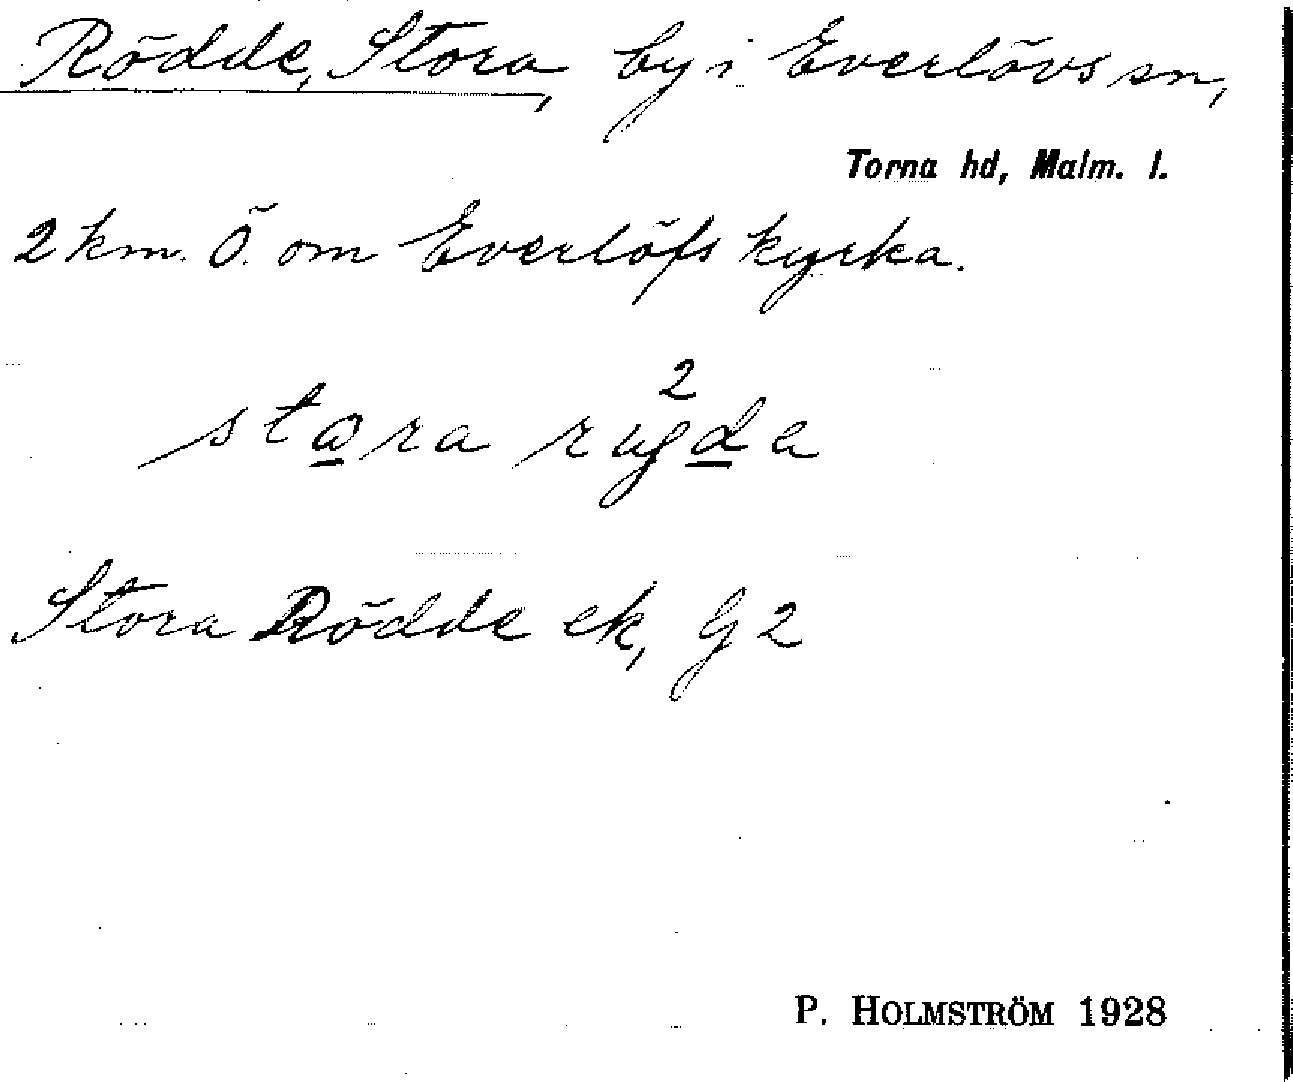 Rödde, Stora, by i Everlövs sn,
Torna hd, Malm. l.
2 km. Ö. om Everlöfs kyrka.
2
stora
Stora Rödde ek, G 2
P. HOLMSTRÖM 1928